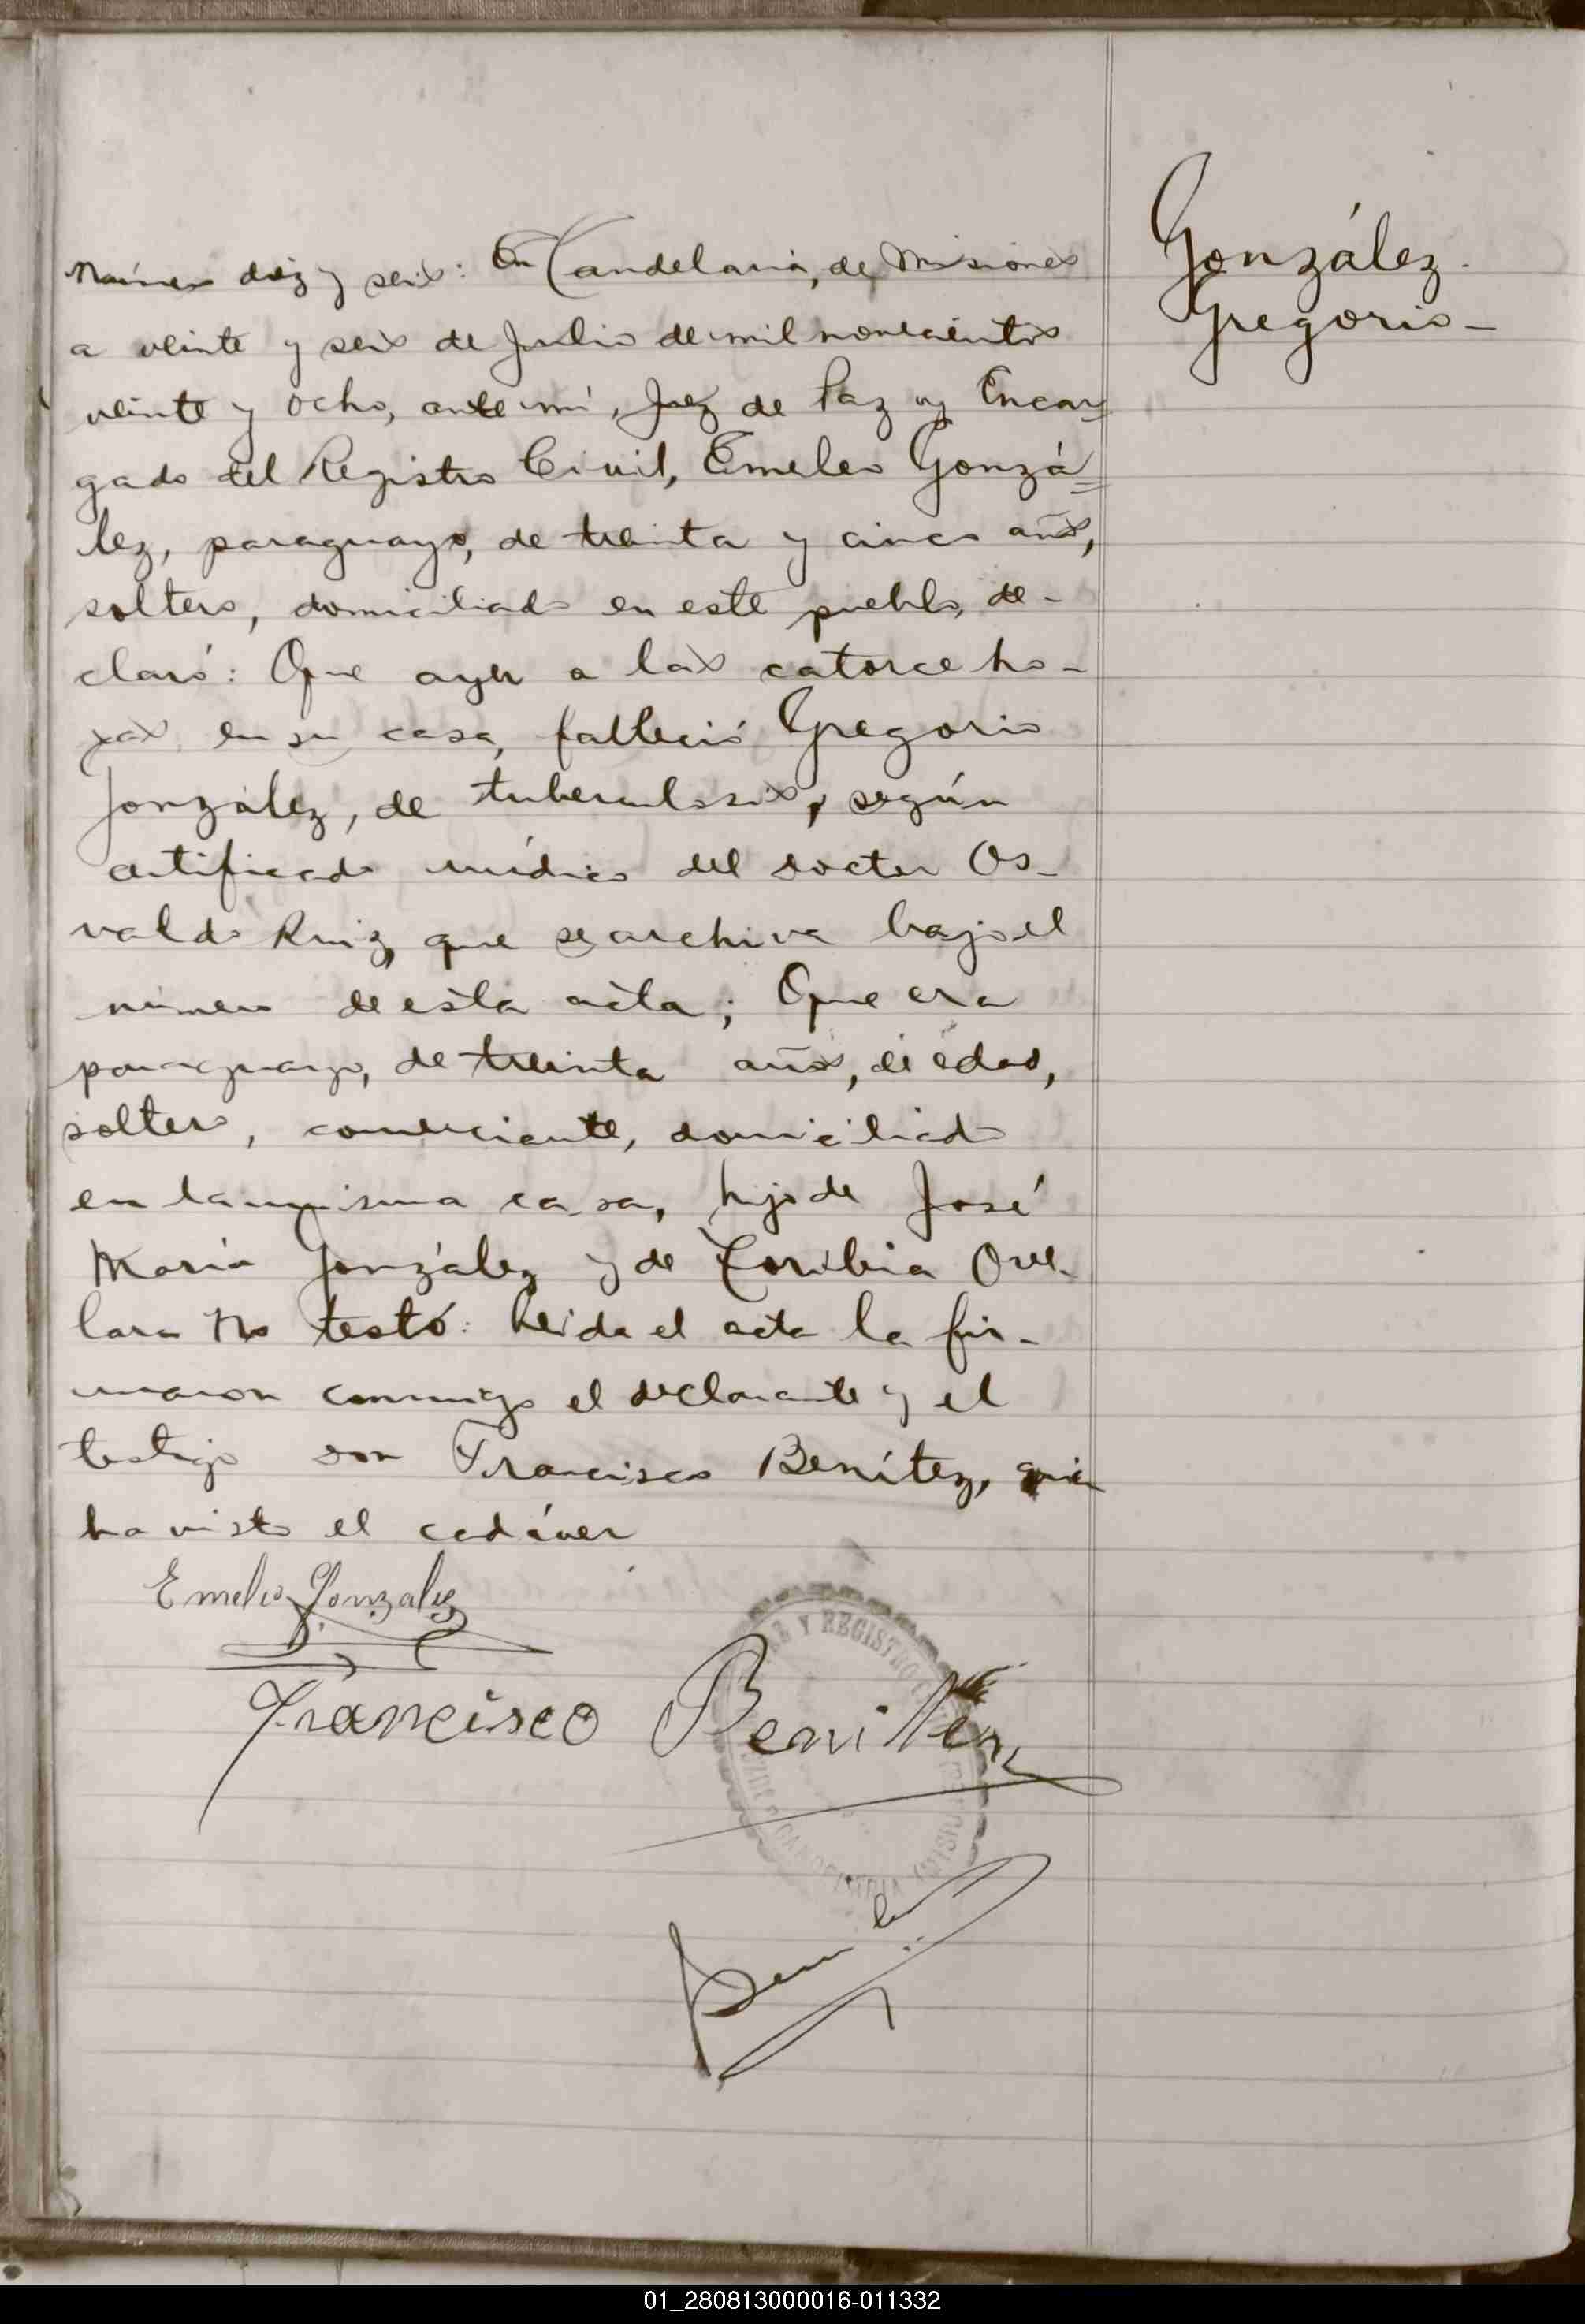 Número diez y seis: En Candelaria, de Misiones
a veinte y seis de Julio de mil novecientos
veinte y ocho, ante mí, Juez de Paz y Encar=
gado del Registro Civil, Emeleo Gonzá=
lez, paraguayo, de treinta y cinco años,
soltero, domiciliado en este pueblo, de-
claró: Que ayer a las catorce ho-
ras en su casa, falleció Gregorio
González, de tuberculosis, según
certificado médico del doctor Os-
valdo Ruiz, que se archiva bajo el
número de esta acta; Que era
paraguayo, de treinta años, de edad,
soltero, comerciante, domiciliado
en la misma casa, hijo de José
María González y de Toribia Ove-
lara No testó: Leida el acta la fir-
maron conmigo el declarante y el
testigo don Francisco Benítez, quien
ha visto el cadáver
González.
Gregorio-
Emeleo Gonzalez
Francisco Benitez
Y REGISTRO
CANDELARIA (MISIO
01_280813000016-011332